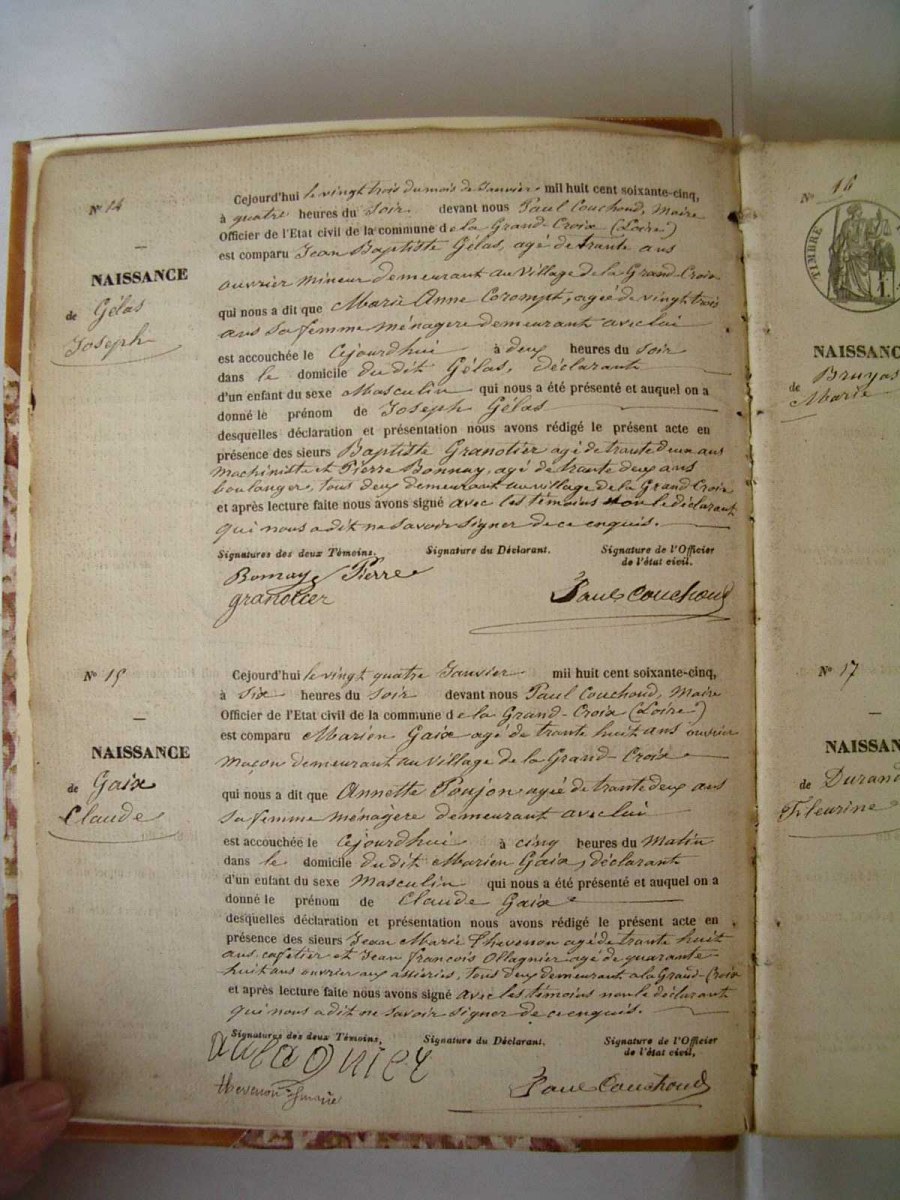 N° 14
NAISSANCE
de Gélas
Joseph
Cejourd'hui le vingt trois du mois de Janvier mil huit cent soixante-cinq,
à quatre heures du Soir devant nous Paul Couchoud, Maire
Officier de l'Etat civil de la commune de la Grand-Croix (Loire)
est comparu Jean Baptiste Gélas, agé de trante ans
ouvrier mineur demeurant au Village de la Grand-Croix
qui nous a dit que Marie Anne Corompt, agée de vingt trois
ans sa femme ménagere demeurant avec lui
est accouchée le Cejourdhui à deux heures du Soir
dans le domicile du dit Gélas, déclarant
d'un enfant du sexe Masculin qui nous a été présenté et auquel on a
donné le prénom de Joseph Gélas
desquelles déclaration et présentation nous avons rédigé le présent acte en
présence des sieurs Baptiste Granotier agé de trante deux ans
machiniste et Pierre Bonnay, agé de trante deux ans
boulanger, tous deux demeurant au village de la Grand Croix
et après lecture faite nous avons signé avec les témoins non le déclarant
qui nous a dit ne Savoir Signer de ce enquis.
Signatures des deux Témoins. Signature du Déclarant. Signature de l'Officier
de l'état civil.
Bonnay Pierre
granotier
Paul Couchoud
N° 15
NAISSANCE
de Gaix
Claude
Cejourd'hui le vingt quatre Janvier mil huit cent soixante-cinq,
à Six heures du Soir devant nous Paul Couchoud, Maire
Officier de l'Etat civil de la commune de la Grand-Croix (Loire)
est comparu Marien Gaix agé de trante huit ans ouvrier
maçon demeurant au Village de la Grand-Croix
qui nous a dit que Annette Poujon agée de trante deux ans
sa femme ménagère demeurant avec lui
est accouchée le Cejourdhui à cinq heures du Matin
dans le domicile du dit Marien Gaix, déclarant
d'un enfant du sexe Masculin qui nous a été présenté et auquel on a
donné le prénom de Claude Gaix
desquelles déclaration et présentation nous avons rédigé le présent acte en
présence des sieurs Jean Marie Thevenon agé de trante huit
ans, cafetier et Jean françois Ollagnier agé de quarante
huit ans ouvrier aux assieries, tous deux demeurant a la Grand-Croix
et après lecture faite nous avons signé avec les témoins non le déclarant
qui nous a dit ne savoir signer de ce enquis.
Signatures des deux Témoins, Signature du Déclarant. Signature de l'Officier
de l'état civil,
thevenon
Paul Couchoud
N° 16
TIMBRE
NAISSANC
de Bruyas
Marie
N° 17
NAISSAN
de Durand
Fleurine